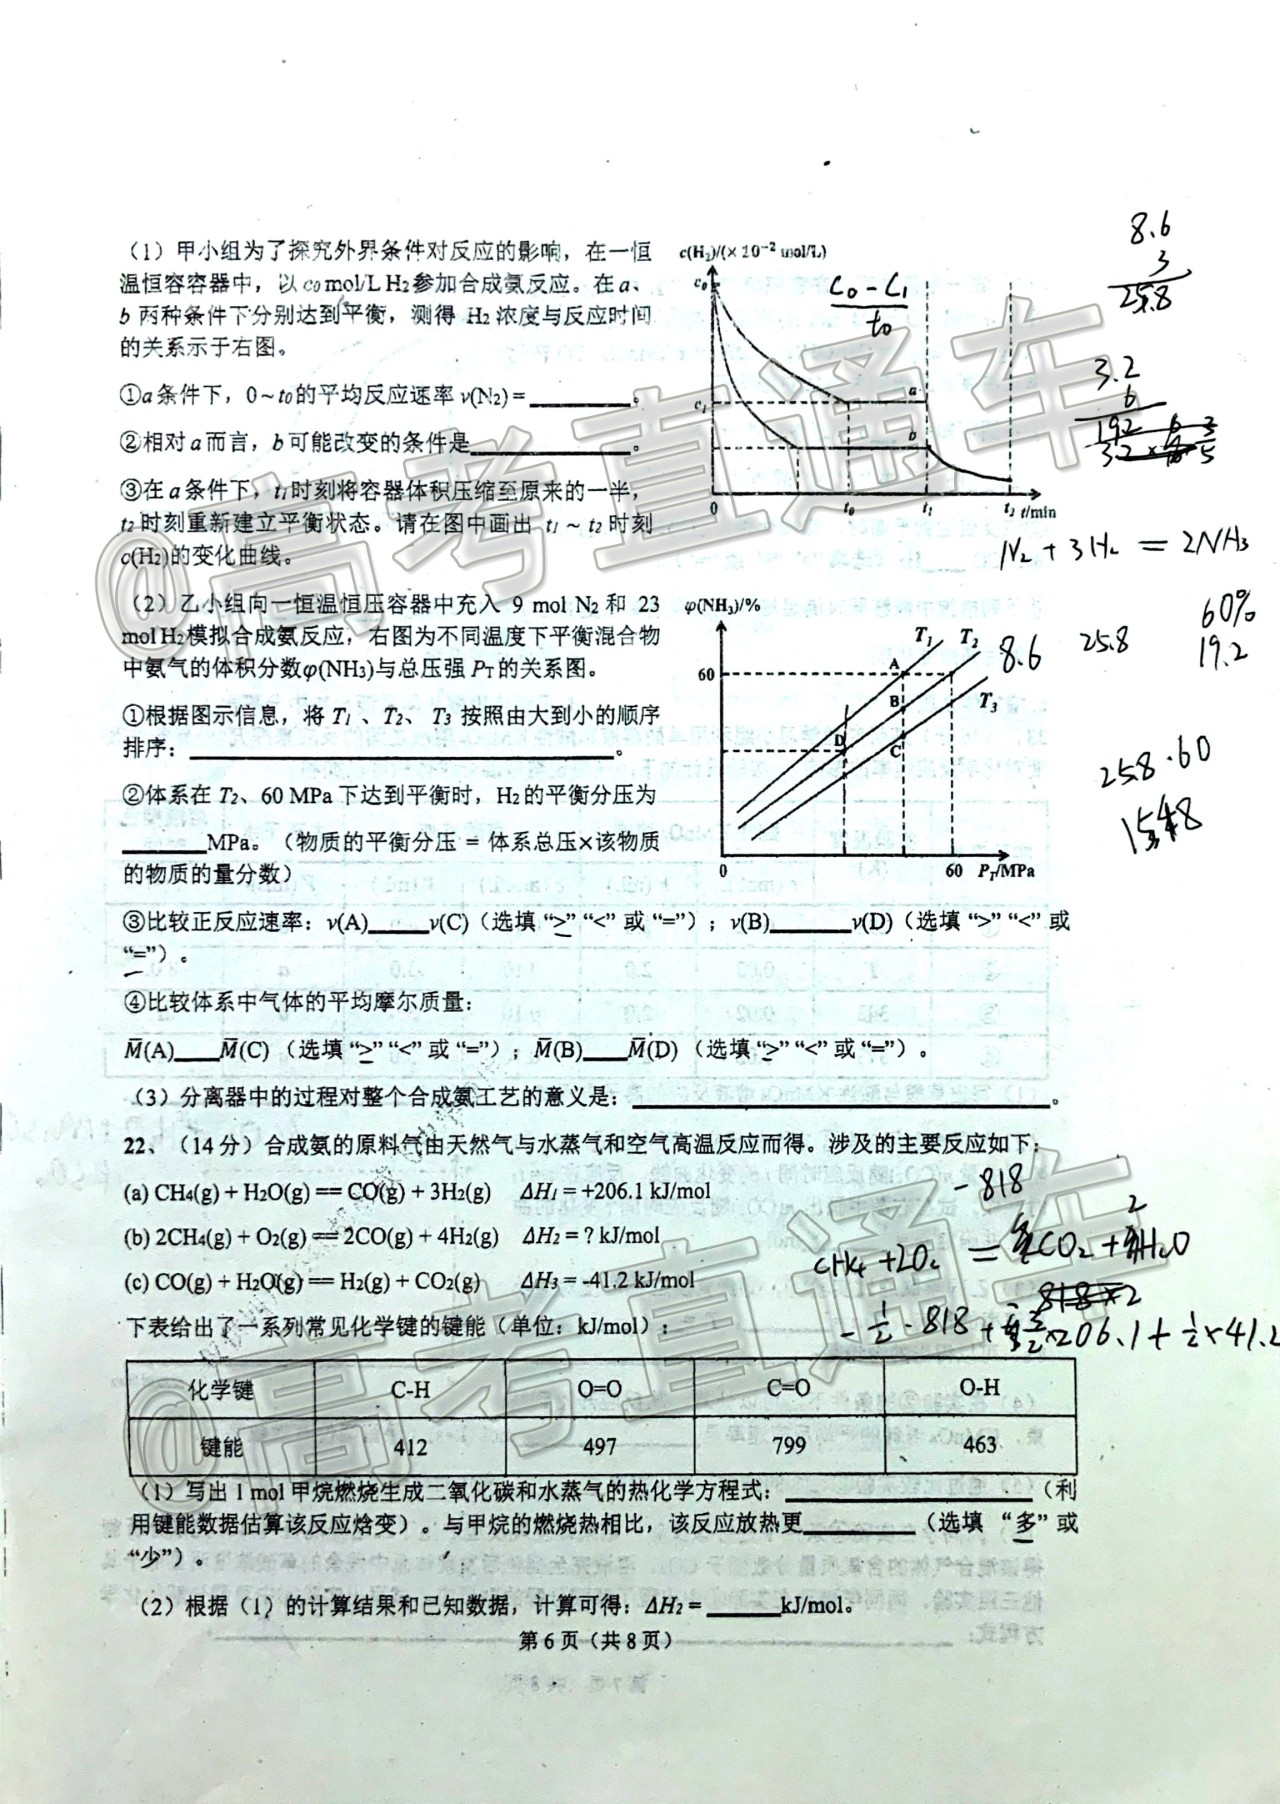 （1）甲小组为了探究外界条件对反应的影响，在一恒
温恒容容器中，以 c₀ mol/L H₂参加合成氨反应。在 a、
b 两种条件下分别达到平衡，测得 H₂ 浓度与反应时间
的关系示于右图。
①a 条件下，0～t₀的平均反应速率 v(N₂) = ________。
②相对 a 而言，b 可能改变的条件是________。
③在 a 条件下，t₁时刻将容器体积压缩至原来的一半，
t₂ 时刻重新建立平衡状态。请在图中画出 t₁ ~ t₂ 时刻
c(H₂)的变化曲线。
c(H₂)/(×10⁻² mol/L)
c₀
c₁
a
b
0 t₀ t₁ t₂ t/min
C₀-C₁
t₀
8.6
3
25.8
3.2
6
192
N₂+3H₂=2NH₃
（2）乙小组向一恒温恒压容器中充入 9 mol N₂ 和 23
mol H₂模拟合成氨反应，右图为不同温度下平衡混合物
中氨气的体积分数φ(NH₃)与总压强 Pᴛ 的关系图。
①根据图示信息，将 T₁ 、T₂、 T₃ 按照由大到小的顺序
排序：________。
②体系在 T₂、60 MPa 下达到平衡时，H₂的平衡分压为
________MPa。（物质的平衡分压 = 体系总压×该物质
的物质的量分数）
φ(NH₃)/%
T₁ T₂
T₃
60
A
B
D
C
0 60 Pᴛ/MPa
8.6 25.8
60%
19.2
258·60
③比较正反应速率：v(A)____v(C)（选填 “>” “<” 或 “=”）；v(B)____v(D)（选填 “>” “<” 或
“=”）。
④比较体系中气体的平均摩尔质量：
M̅(A)____M̅(C) （选填 “>” “<” 或 “=”）；M̅(B)____M̅(D) （选填 “>” “<” 或 “=”）。
（3）分离器中的过程对整个合成氨工艺的意义是：________。
22、（14 分）合成氨的原料气由天然气与水蒸气和空气高温反应而得。涉及的主要反应如下：
(a) CH₄(g) + H₂O(g) == CO(g) + 3H₂(g) ΔH₁ = +206.1 kJ/mol
(b) 2CH₄(g) + O₂(g) == 2CO(g) + 4H₂(g) ΔH₂ = ? kJ/mol
(c) CO(g) + H₂O(g) == H₂(g) + CO₂(g) ΔH₃ = -41.2 kJ/mol
-818
CH₄+2O₂=CO₂+2H₂O
818×2
下表给出了一系列常见化学键的键能（单位：kJ/mol）：
化学键 C-H O=O C=O O-H
键能 412 497 799 463
（1）写出 1 mol 甲烷燃烧生成二氧化碳和水蒸气的热化学方程式：________（利
用键能数据估算该反应焓变）。与甲烷的燃烧热相比，该反应放热更________（选填 “多” 或
“少”）。
（2）根据（1）的计算结果和已知数据，计算可得：ΔH₂ = ________kJ/mol。
第 6 页（共 8 页）
@高考直通车
@高考直通车